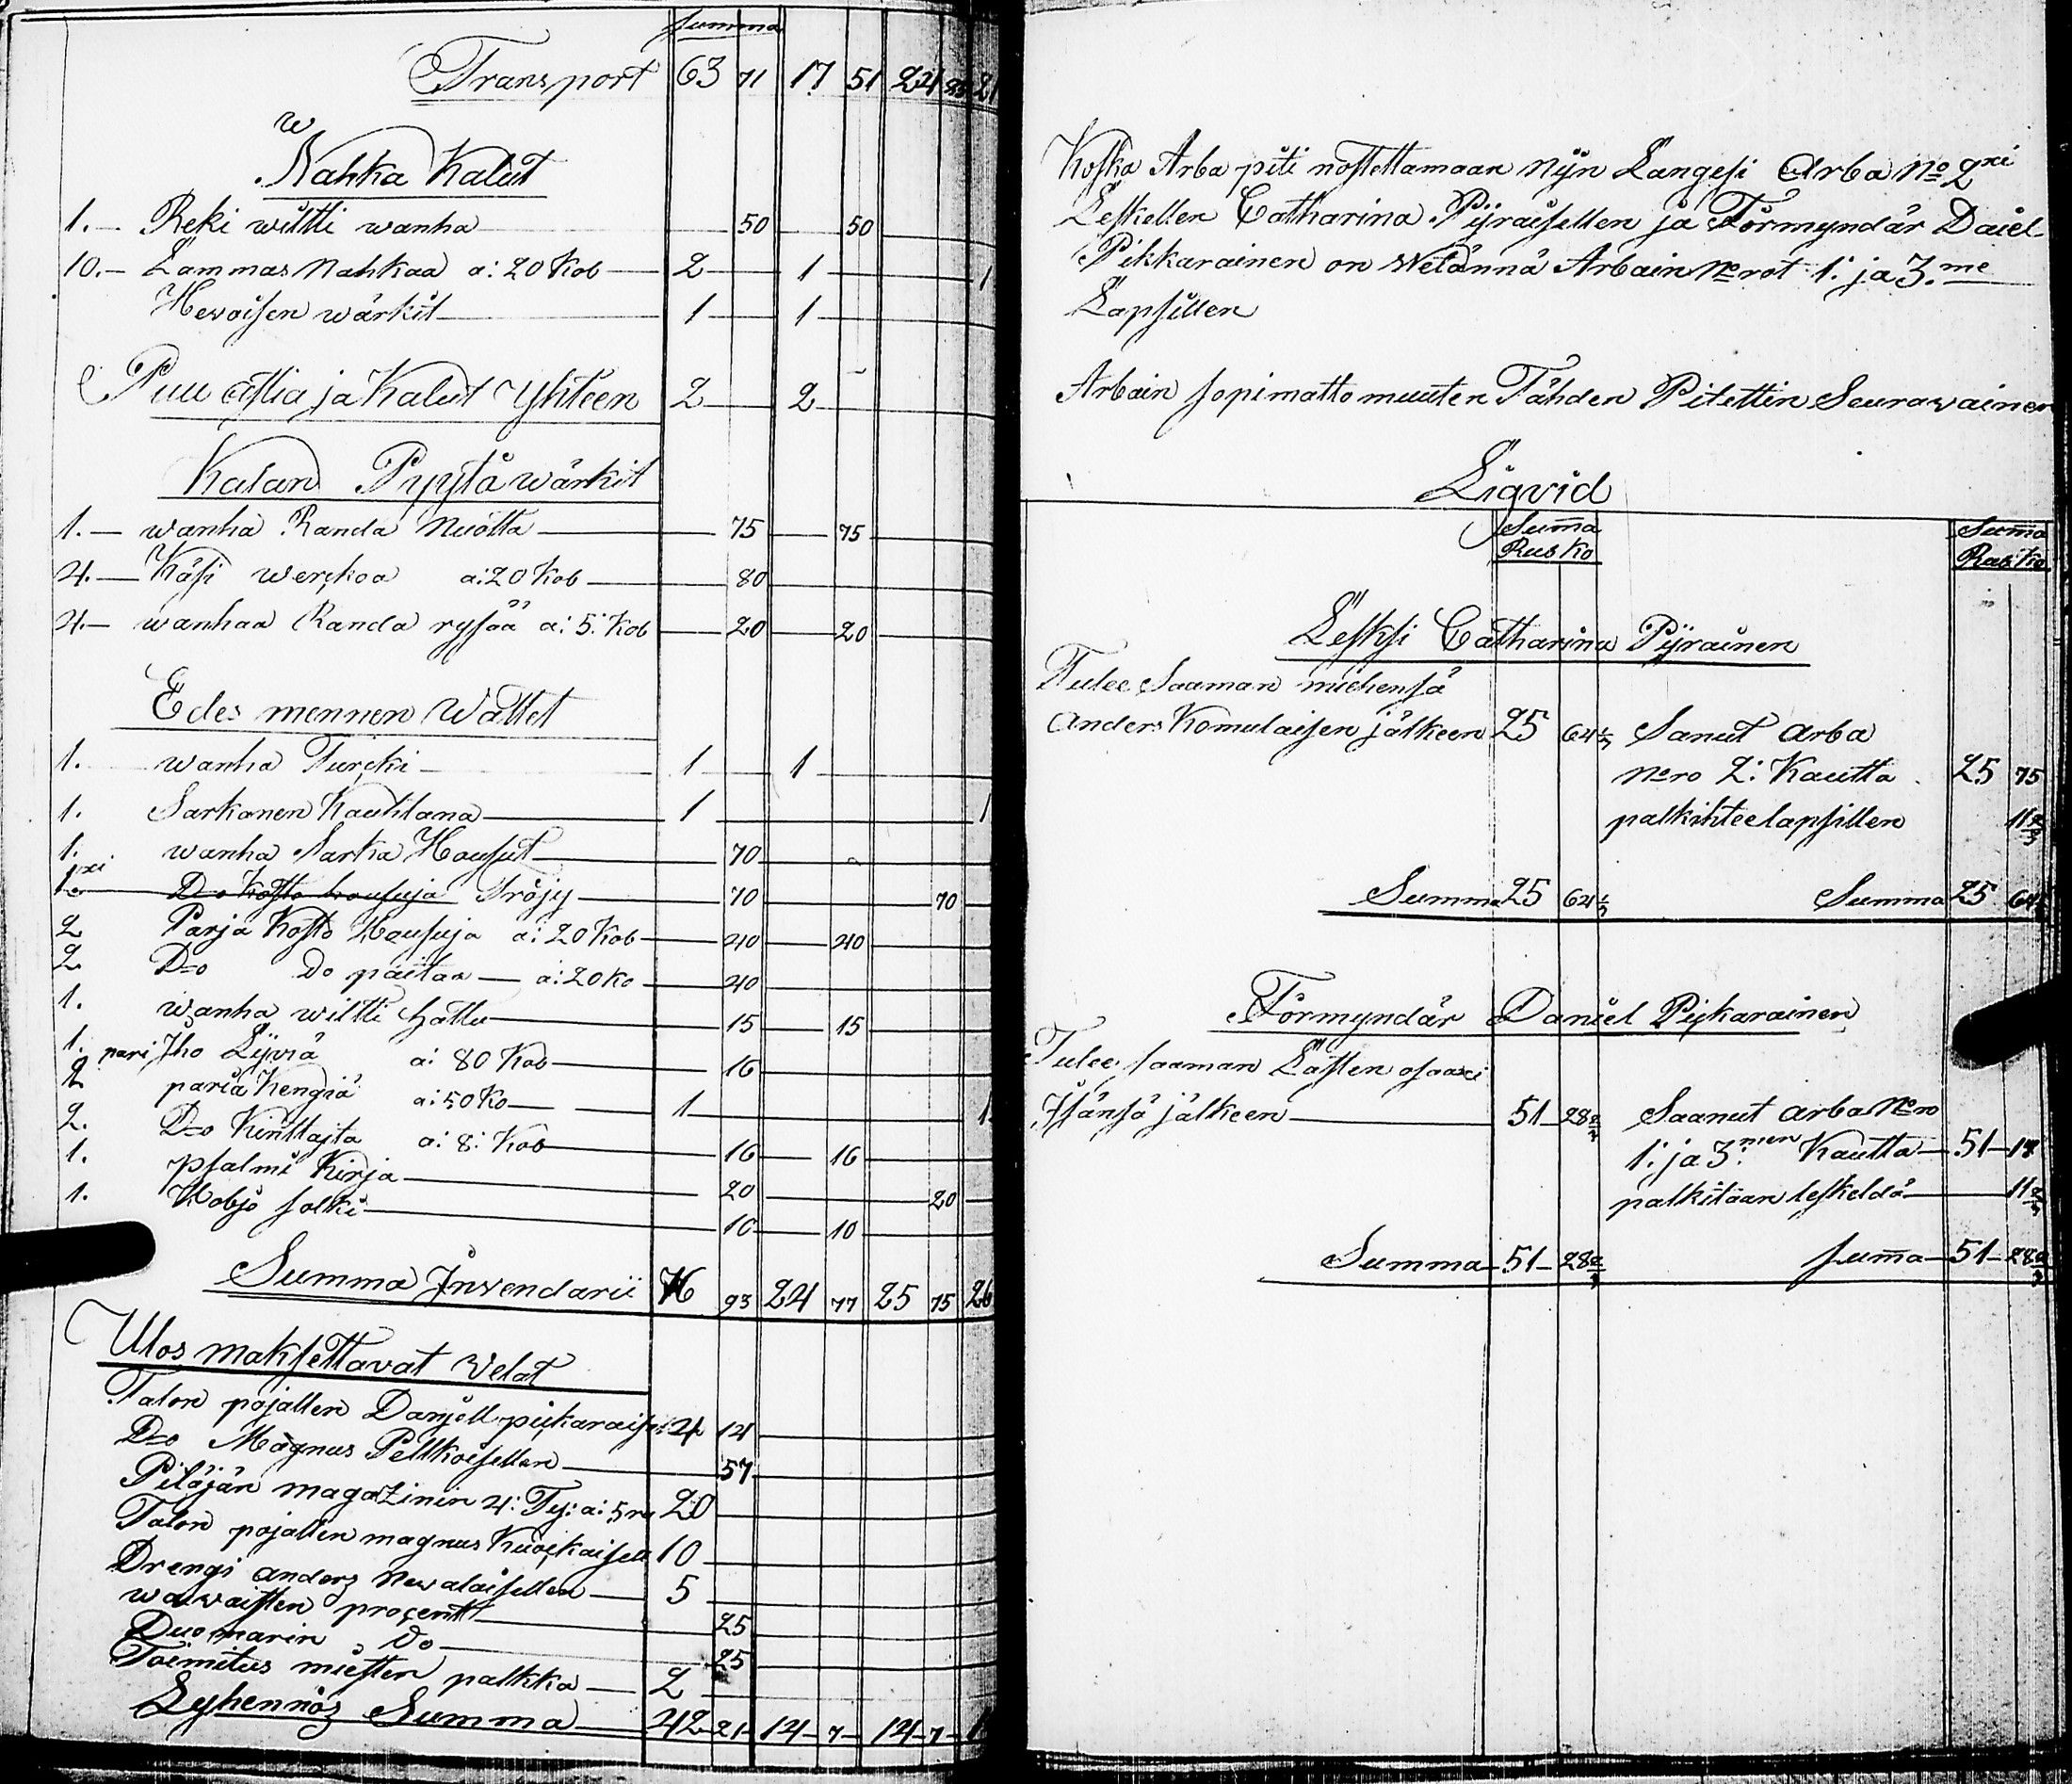 Summa
Transport 63 71 17 51 24 83 21
w
Nahka Kalut
1.— Reki wiltti wanha 50 50
10.— Lammas Nahkaa a: 20 Kob 2 1 1
Hewoisen wärkit 1 1
Puu astia ja Kalut Yhteen 2 2
Kalan Pyytö wärkit
1.— wanha Randa Nuotta 75 75
4.— Käsi werckoa a: 20 Kob 80
4.— wanhaa Randa rysää a: 5: Kob 20 20
Edes mennen Wattet
1. wanha Turcki 1 1
1. Sarkanen Kauhtana 1 1
1. wanha Sarka Housut 70
1xi D=o Kosto housuja Tröjy 70 70
2 Parja Kosto Housuja a: 20 Kob 40 40
2. D=o Do paitaa a: 20 Ko 40
1. wanha wiltti hattu 15 15
1. pari Iho Lijviä a: 80 Kob 16
2 paria Kengiä a: 50 Ko 1 1
2. D=o Kinttajta a: 8: Kob 16 16
1. Psalmi Kirja 20 20
1. Hobjo solki 10 10
Summa Invendarii 76 93 24 77 25 75 26
Ulos maksettavat Velat
Talon pojallen Danjell pickaraisel 4 14
D=o Magnus Peltkoisellen 57
Pitäjän magazinin 4: Ty: a: 5 ru 20
Talon pojallen magnus Kuickaisell 10
Drengi anders Newalaisellen 5
wawaisten procentt 25
Duomarin Do 25
Toimitus miesten palkka 2
Lyhennös Summa 42 21 14 7 14 7 1
Koska Arba piti nostettamaan Nijn Langesi Arba No 2xi
Leskellen Catharina Pijraisellen ja Förmyndär Daiel
Pikkarainen on Wetännä Arbain Nerot 1: ja 3.me
Lapsillen
Arbain sopimattomuuten Tähden Pitettin Seurawainen
Liqvid
Summa Summa
Rub Ko Rub Ko
Leski Catharina Pijrainen
Tulee Saaman miehensä
Anders Komulaisen jälkeen 25 64 1/3 Sanut Arba
Nero 2: Kautta 25 75
palkihtee lapsillen 11 2/3
Summa 25 64 1/3 Summa 25 64 1/3
Förmyndär Daniel Pickarainen
Tulee saaman Lasten osaaxi
Isänsä jälkeen 51 28 2/3 Saanut arba Nero
1: ja 3:men Kautta 51 17
palkitaan leskeldä 11 2/3
Summa 51 28 2/3 Summa 51 28 2/3